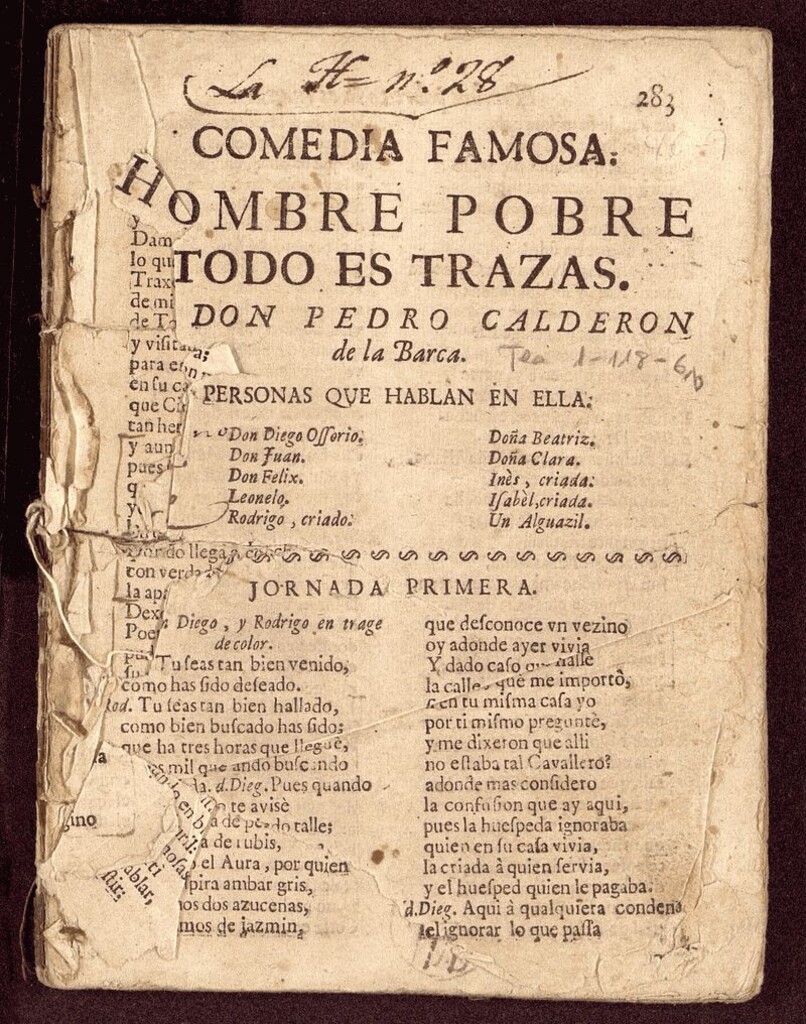 La H= nº. 28
283
COMEDIA FAMOSA.
HOMBRE POBRE
TODO ES TRAZAS.
DON PEDRO CALDERON
de la Barca.
Tea 1-118-6
PERSONAS QVE HABLAN EN ELLA:
Don Diego Oſſorio.
Don Juan.
Don Felix.
Leonelo.
Rodrigo, criado.
Doña Beatriz.
Doña Clara.
Inès, criada.
Iſabèl, criada.
Un Alguazil.
JORNADA PRIMERA.
Diego, y Rodrigo en trage
de color.
Tu ſeas tan bien venido,
como has ſido deſeado.
Rod. Tu ſeas tan bien hallado,
como bien buſcado has ſido;
que ha tres horas que lleguè,
mil que ando buſcando
d.Dieg. Pues quando
te avisè
talle;
a de rubis,
el Aura, por quien
ſpira ambar gris,
dos azucenas,
de jazmin,
que deſconoce vn vezino
oy adonde ayer vivia
Y dado caſo halle
la calle què me importò,
ſi en tu miſma caſa yo
por ti miſmo preguntè,
y me dixeron que alli
no eſtaba tal Cavallero?
adonde mas conſidero
la confuſion que ay aqui,
pues la hueſpeda ignoraba
quien en ſu caſa vivia,
la criada à quien ſervia,
y el hueſped quien le pagaba.
d.Dieg. Aqui à qualquiera condena
el ignorar lo que paſſa
y
Dam
lo qu
Trax
de mi
de T
y viſita
para
en ſu ca
que C
tan her
y aun
pues
q
y
do llega
con verd
la ap
Dex
Poe
gino
ti
ablar,